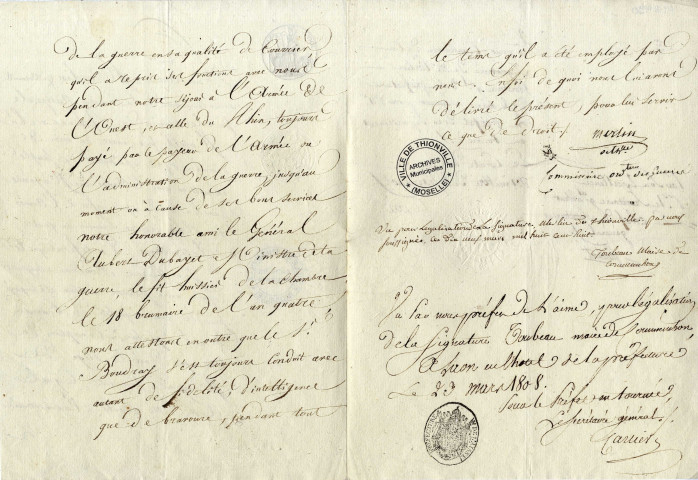 de la guerre en sa qualité de Courrier
qu'il a repris ses fonctions avec nous
pendant notre séjour à L'Armée de
L'Ouest, et celle du Rhin, toujours
payé par le payeur de L'Armée ou
L'administration de la guerre, jusqu'au
moment ou à cause de ses bons services
notre honorable ami le Général
Aubert Dubayet Ministre de la
guerre, le fit huissier de la chambre
le 18 brumaire de l'an quatre
nous attestons en outre que le Sr.
Boudray s'est toujours conduit avec
autant de fidélité, d'intelligence
que de bravoure, pendant tout
le tems qu'il a été employé par
nous. En foi de quoi nous lui avons
délivré le présent, pour lui servir
ce que de droit.
merlin
Commissaire des guerres
VILLE DE THIONVILLE
ARCHIVES
Municipales
★ (MOSELLE) ★
Vu pour Légalisation de La Signature Merlin de Thionville par nous
soussigné, ce dix neuf mars mil huit cent huit
Maire de
Vu Par nous préfet de L'aisne, pour légalisation
de la Signature maire de
A Laon en l'hotel de la préfecture
Le 23 mars 1808.
Pour le Préfet en tournée,
Le Secrétaire général